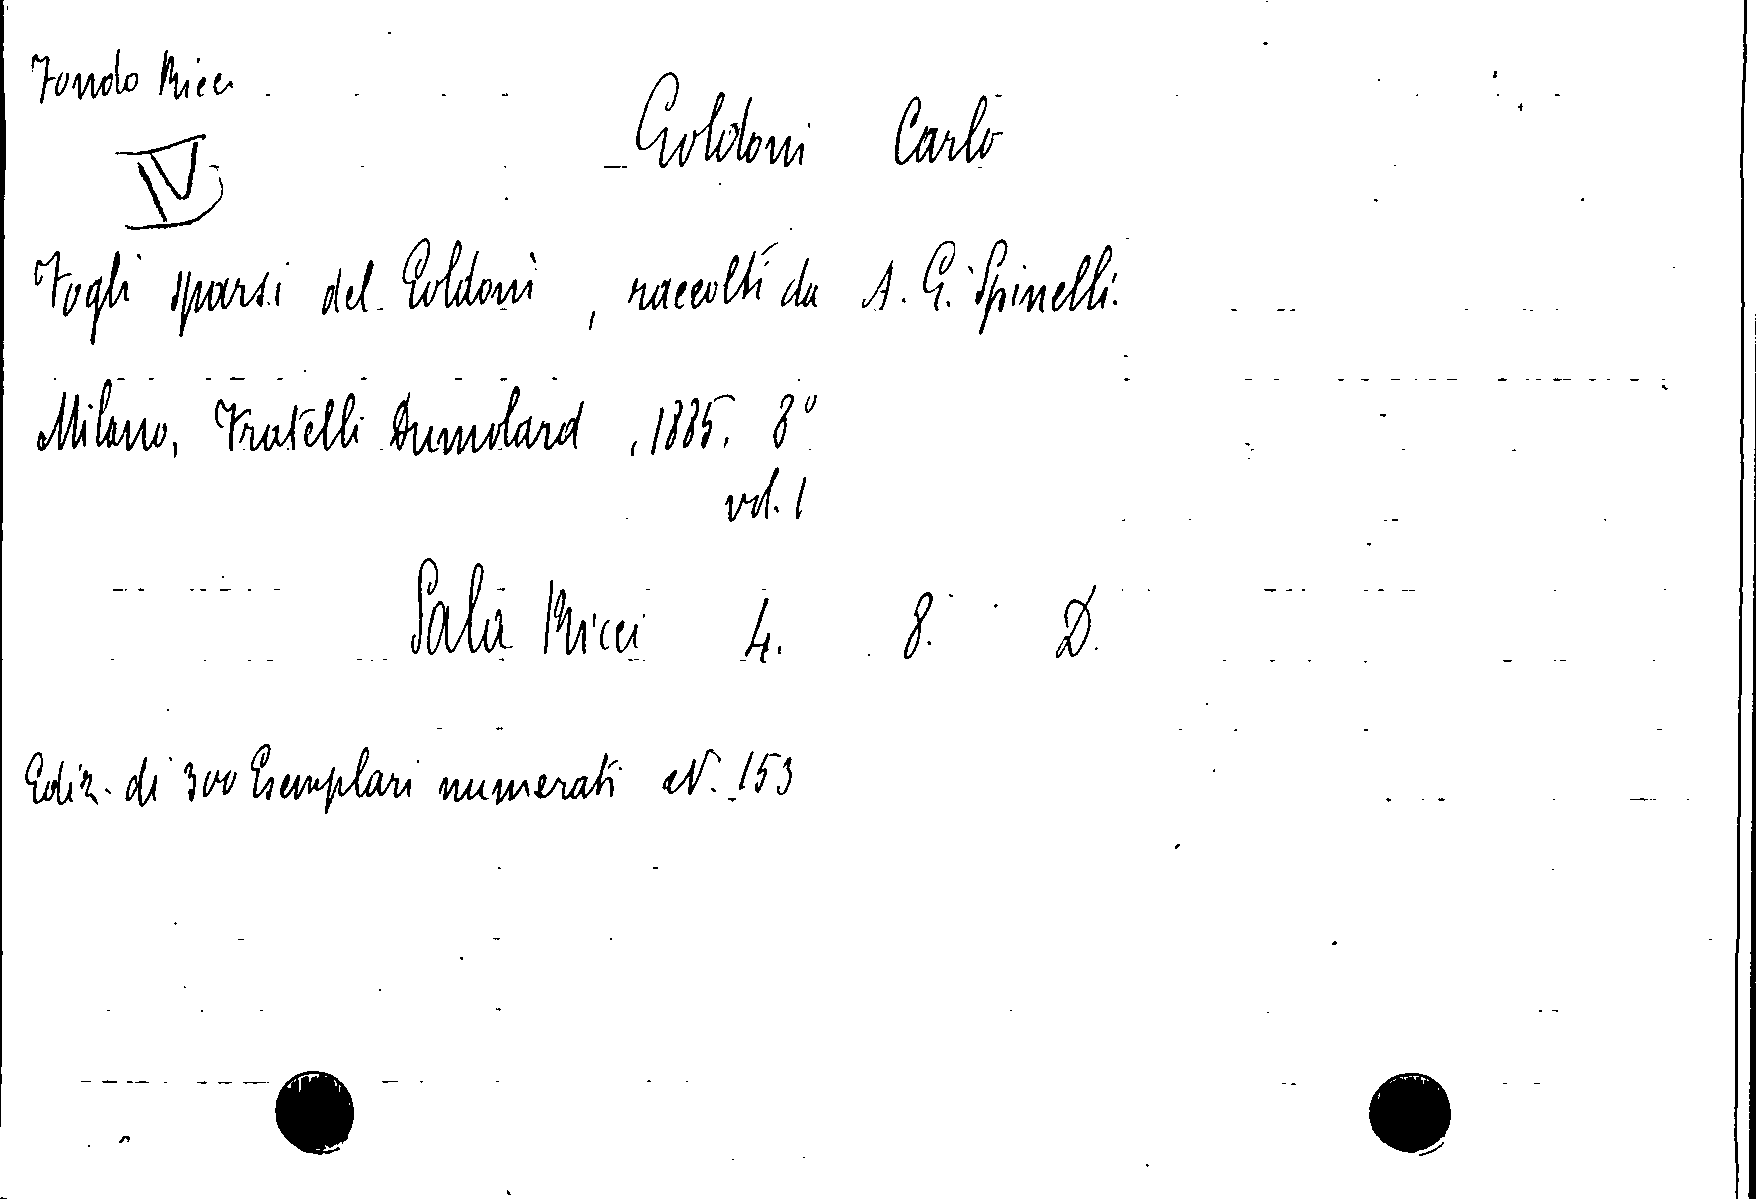 Fondo Ricci
Goldoni Carlo
IV
Fogli sparsi del Goldoni, raccolti da A. G. Spinelli.
Milano, Fratelli Dumolard, 1885. 8°
vol. 1
Sala Ricci 4. 8. D.
Ediz. di 300 Esemplari numerati N. 153